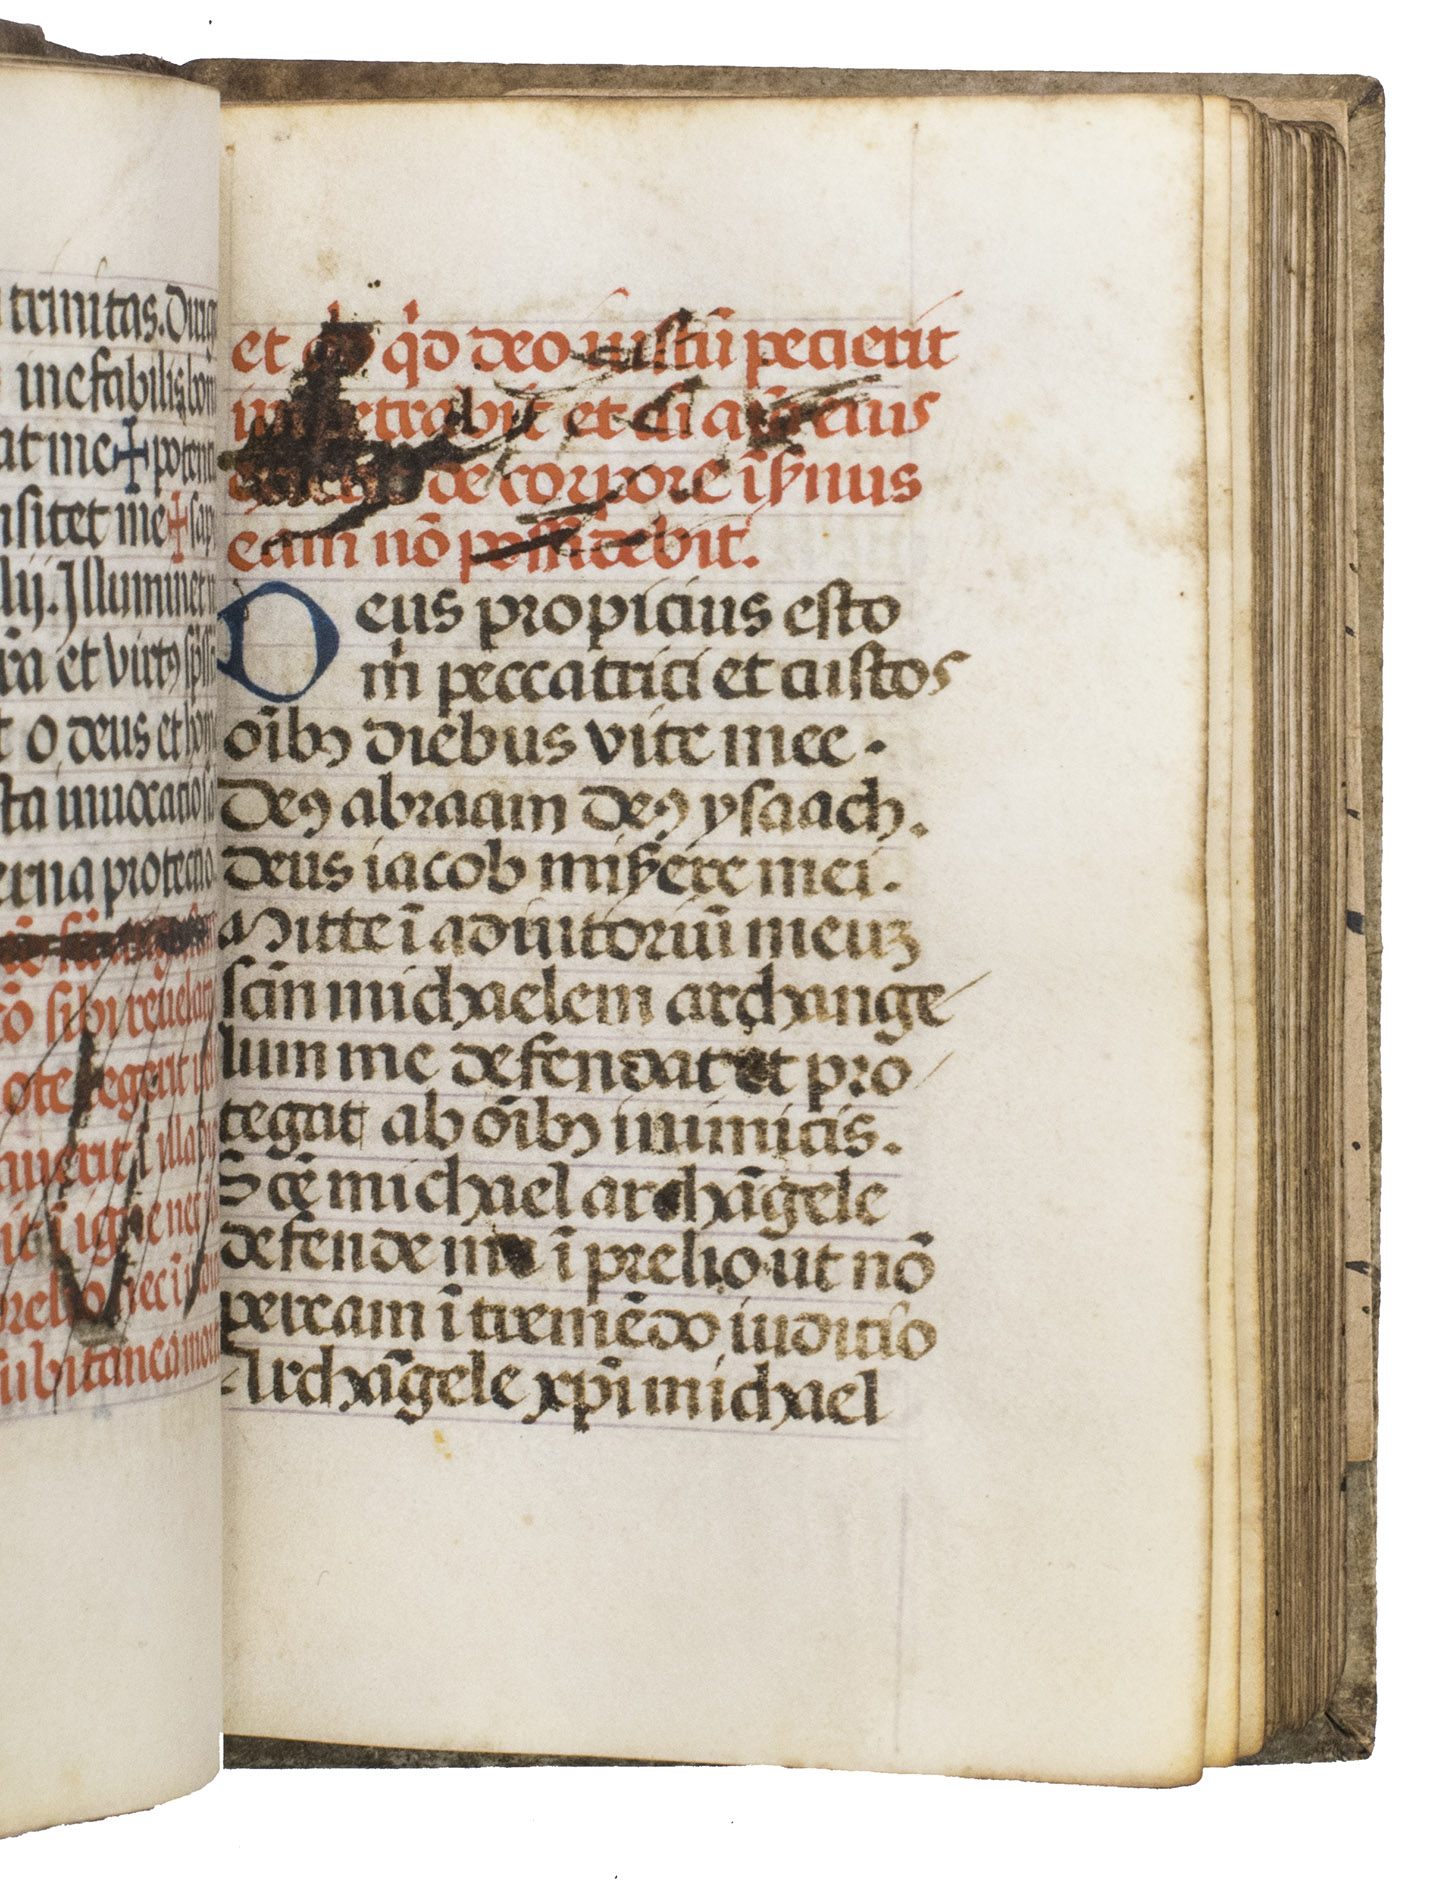 trinitas. Dirig
inefabilis bon
at me + potent
nsitet me + sap
lij. Illuminet
ra et virtꝯ sp̄s
o. deus et ho
sta inuocatio
erna protectio
sibi reuelat
ote legerit
it ī igne nec
prelio nec ī
subitanea mor
et qd̄ deo iustū pecierit
impetrabit et cū aīa eius
de corpore īfꝑnus
eam nō possidebit.
Deus propicius esto
m̄ peccatrici et custos
oībꝫ diebus vite mee.
Deꝯ abraam deꝯ ysaach.
deus iacob misꝑere mei.
Mitte ī adiutoriū meuꝫ
scm̄ michaelem archange
lum me defendat et pro
tegat ab oībꝫ inimicis.
Scē michael archāgele
defende me ī prelio ut nō
peream ī tremēdo iuditio
Archāgele xpī michael